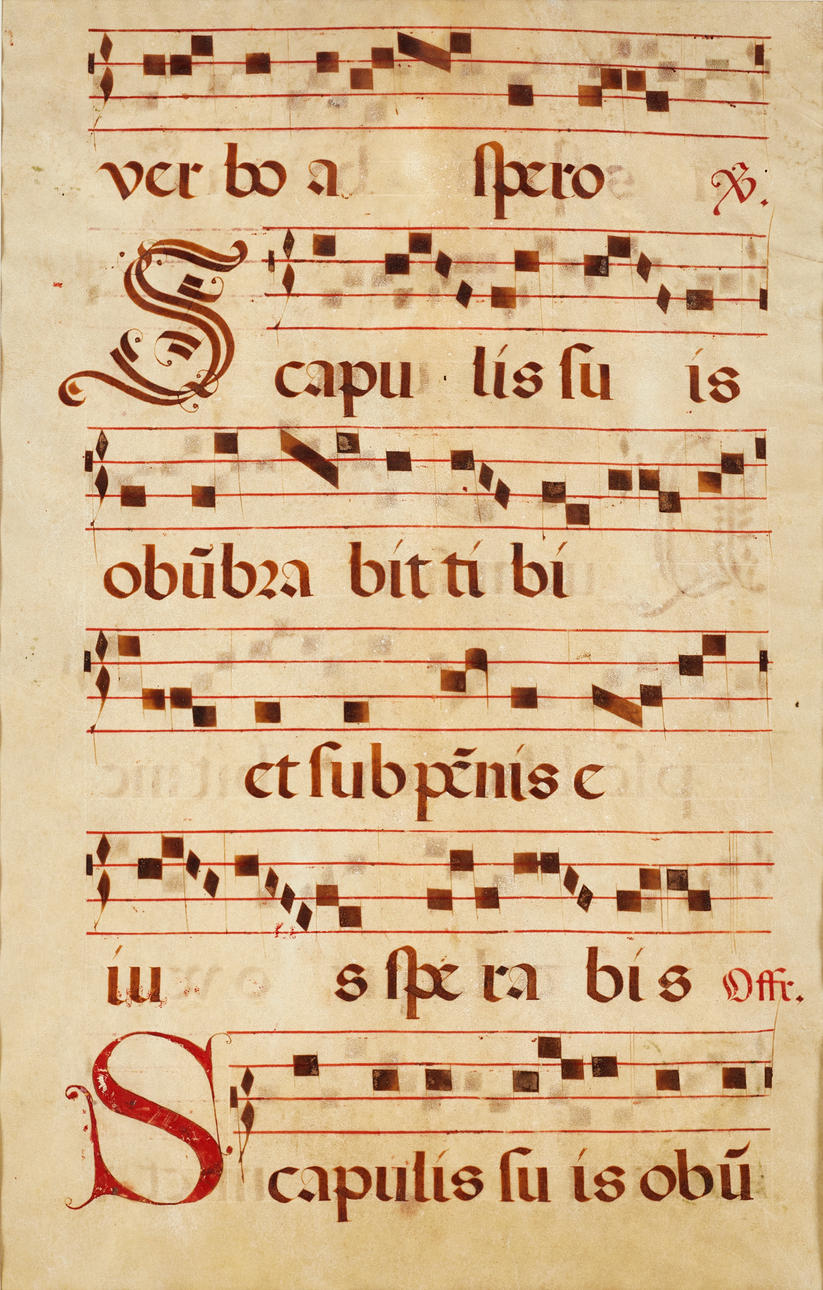 ver bo a spero ℣.
Scapu lis su is
obūbra bit ti bi
et sub pēnis e
iu s spe ra bis Offr.
Scapulis su is obū